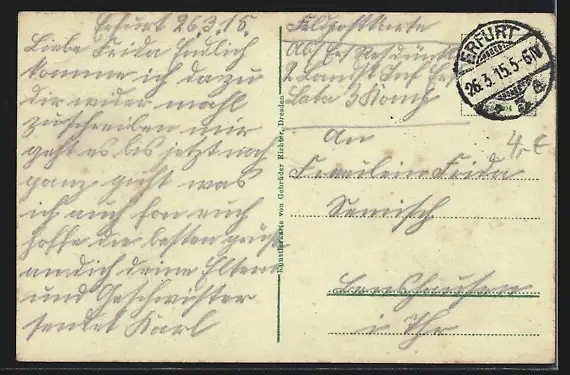 Erfurt 26.3.15.
Liebe Frida Endlich
komme ich dazu
dir wider mahl
zuschreiben mir
geht es bis jetzt noch
ganz guht was
ich auch fon euch
hoffe die besten grüße
an dich deine Eltern
und Geschwister
sendet Karl
Künstlerkarte von Gebrüder Richter, Dresden
Feldpostkarte
2 Landst Inf
3 Komp
ERFURT
26.3.15.5-6N
4,-€
An
Fräulein Frida
Semisch
i Thr